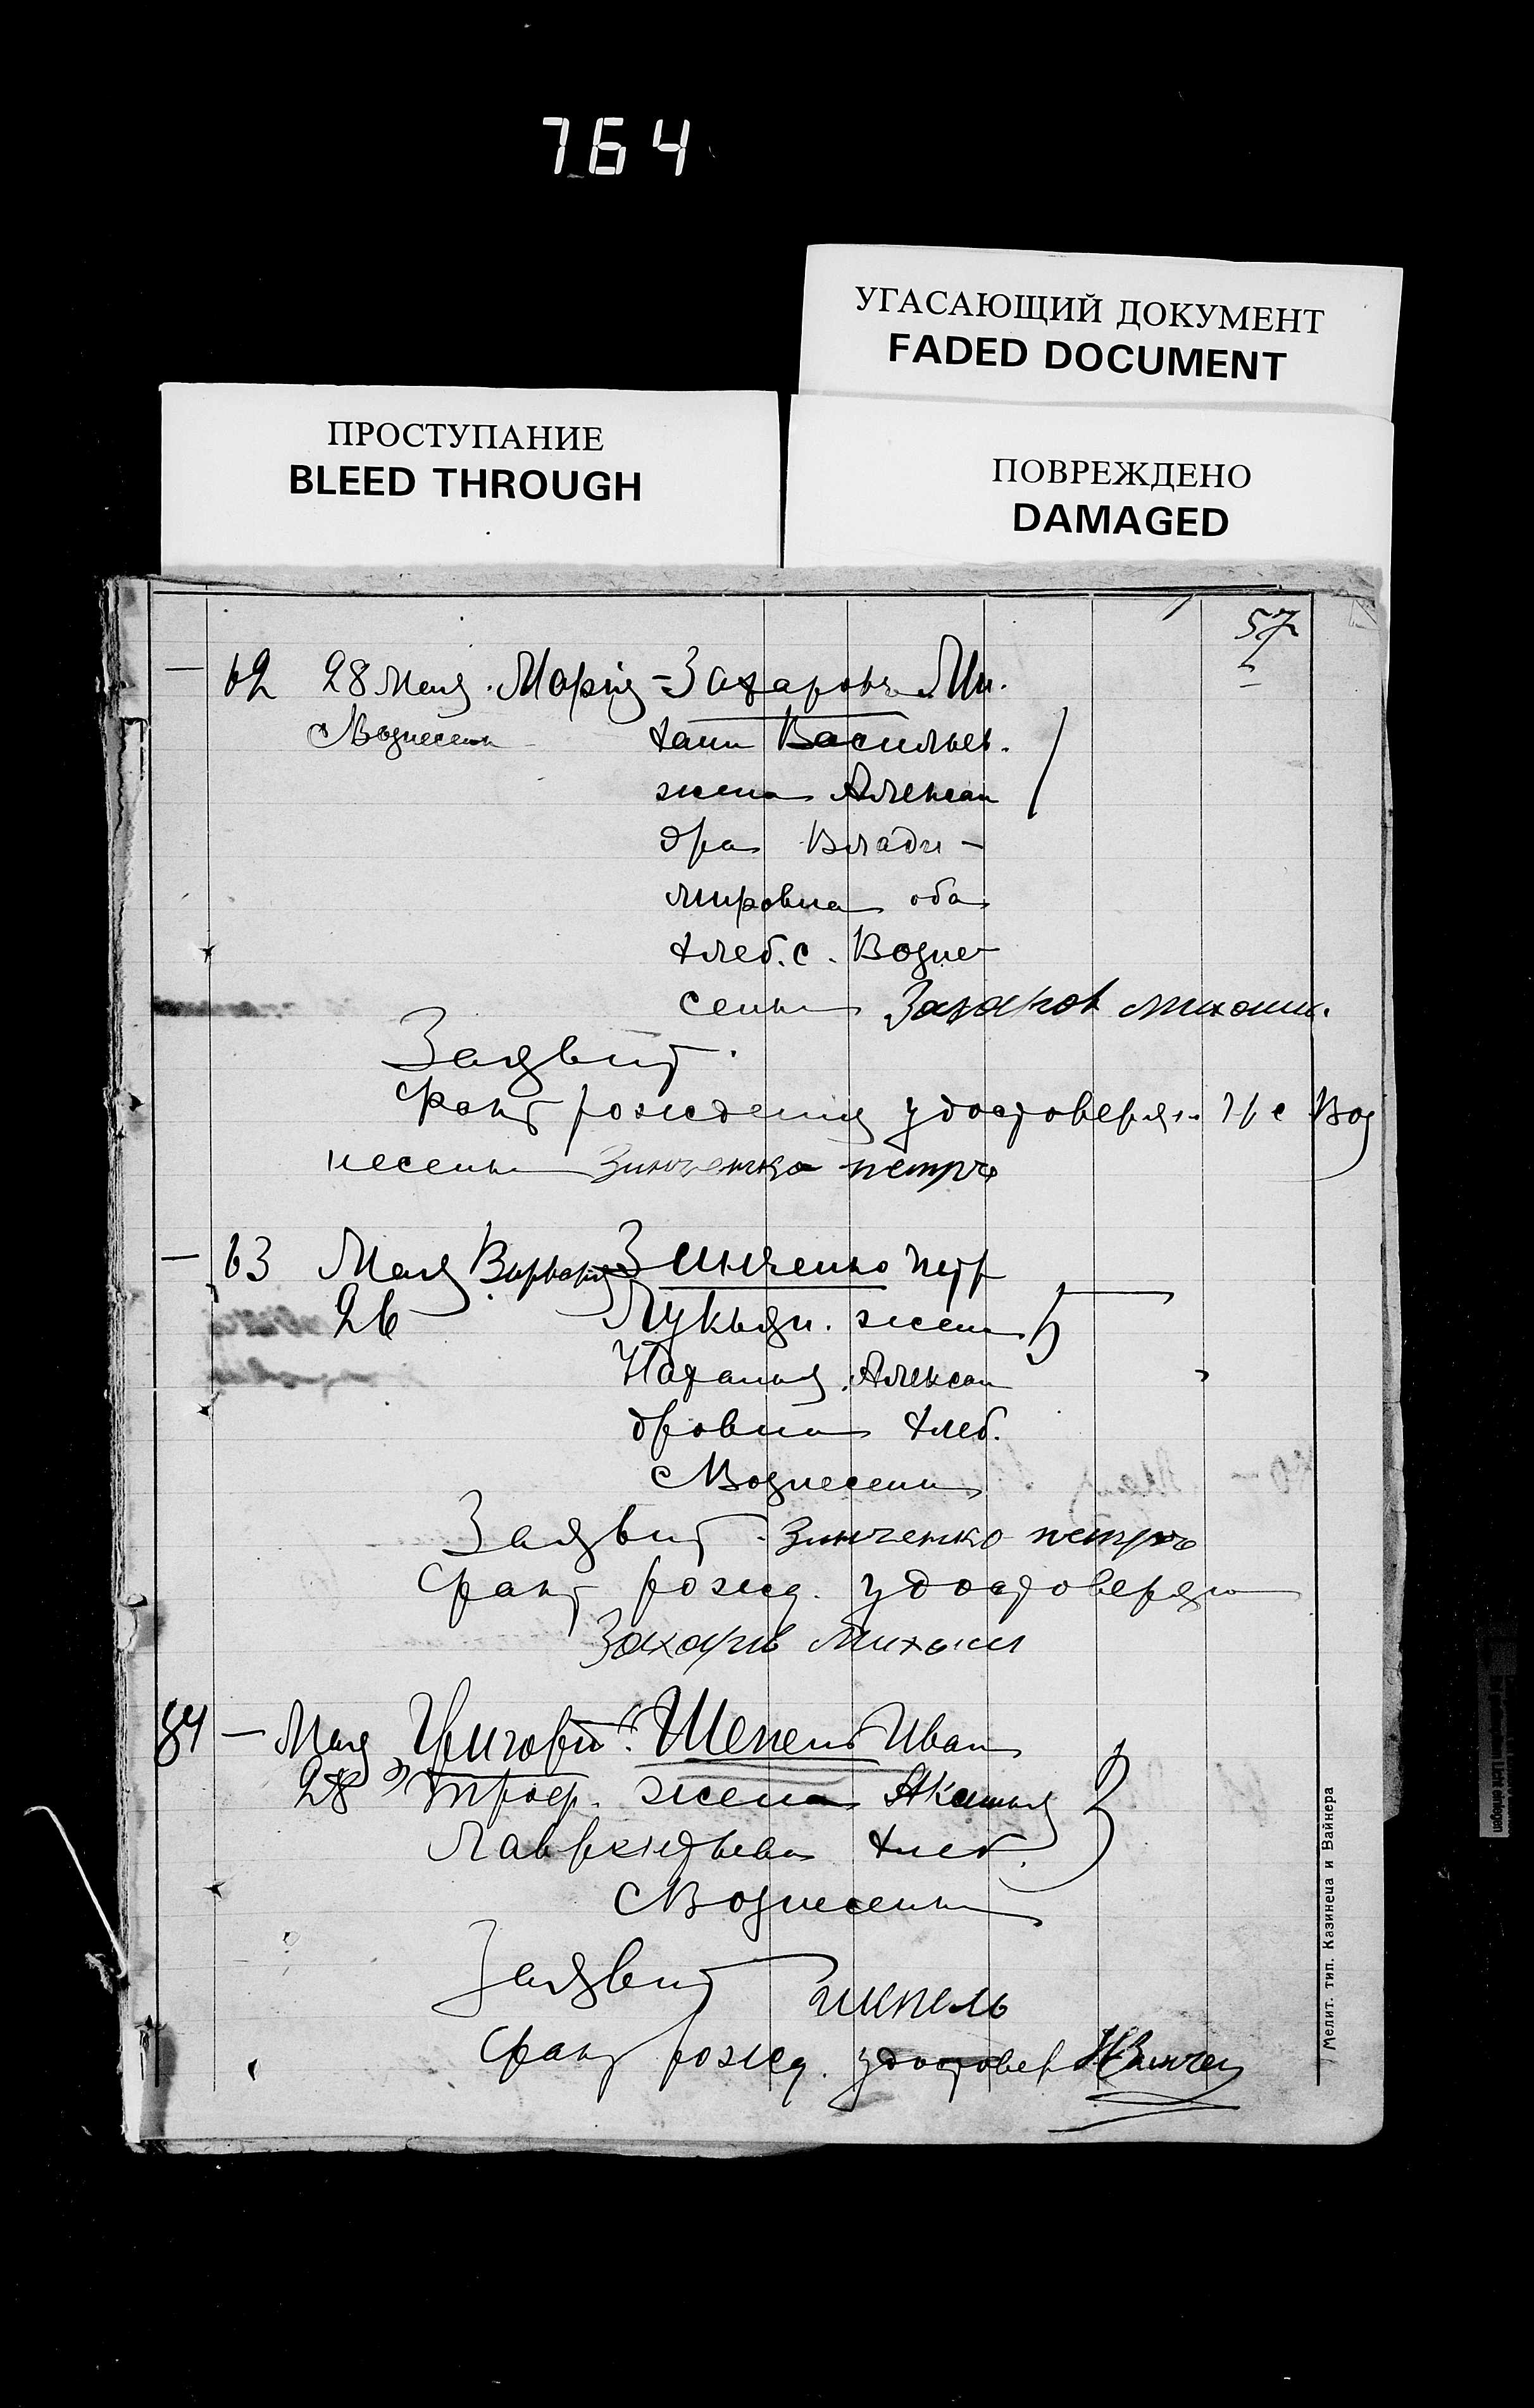 764
УГАСАЮЩИЙ ДОКУМЕНТ
FADED DOCUMENT
ПРОСТУПАНИЕ
BLEED THROUGH
ПОВРЕЖДЕНО
DAMAGED
57
— 62 28 Мая. Мария - Захаров Ми.
с Вознесенк хаил Васильев.
жена Алексан
дра Влади-
мировна оба
хлеб. с. Возне
сенка Захаров Михаил.
Заявит.
Факт рождения удостоверяю гр с Воз
несенк Зинченко петро
— 63 Мая Варвара Зинченко Петр
26 Лукьян. жена 5
Наталья Алексан
дровна хлеб.
с Вознесенк
Заявит. Зинченко петро
факт рожд. удостоверяю
Захаров Михаил
84 — Мая Григорий. Шепель Иван
28 жена 3
хлеб.
с Вознесенк
Заявит шепель
факт рожд. удостовер
Мелит. тип. Казинеца и Вайнера